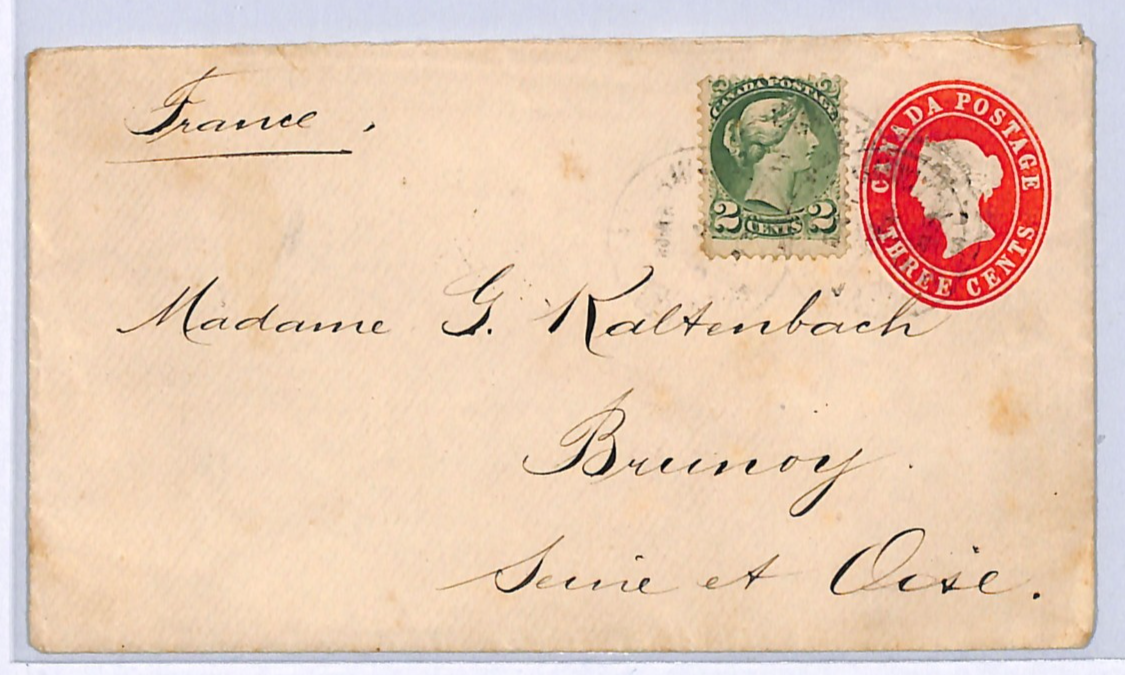 France,
CANADA POSTAGE
2 CENTS 2
CANADA POSTAGE
THREE CENTS
Madame G. Kaltenbach
Brunoy.
Seine et Oise.